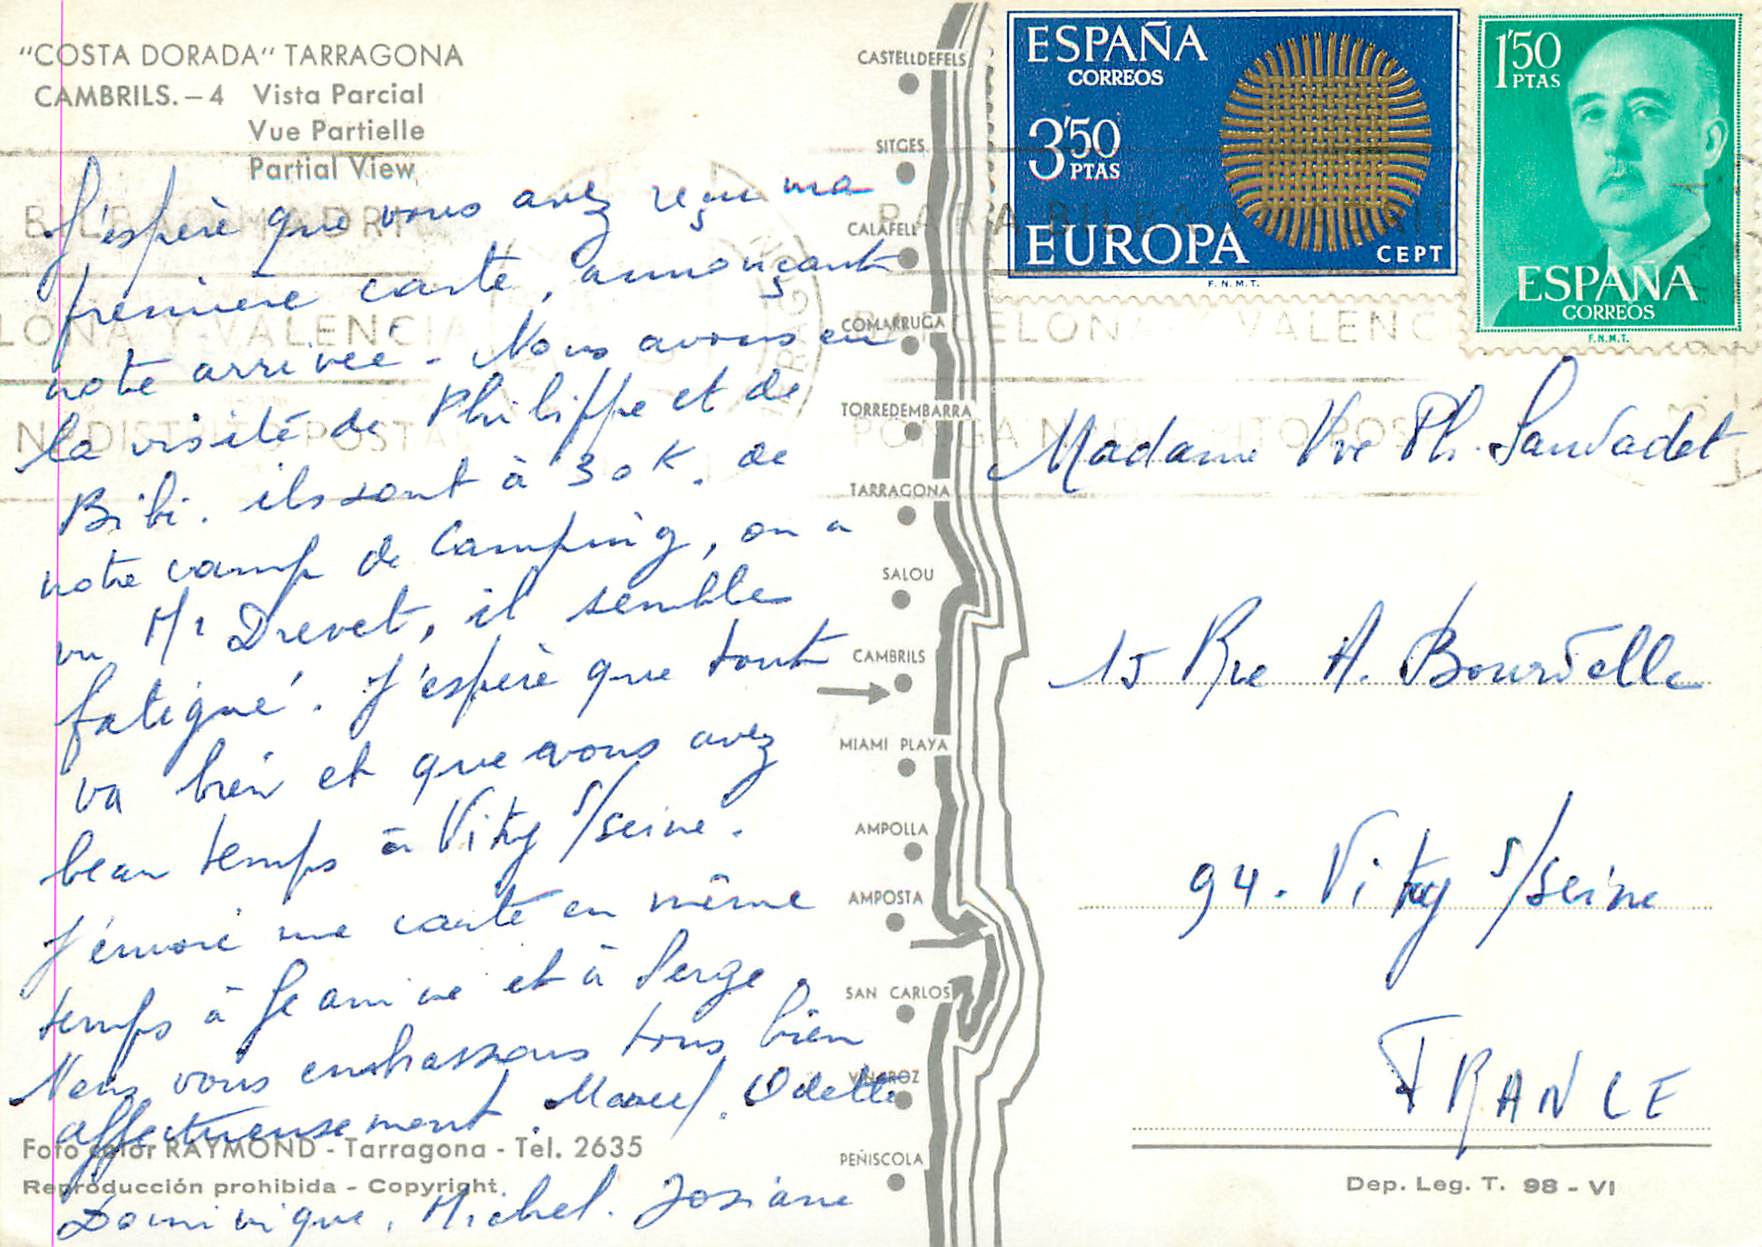 "COSTA DORADA" TARRAGONA
CAMBRILS. - 4 Vista Parcial
Vue Partielle
Partial View
J'espère que vous avez reçu ma
première carte, annonçant
note arrivée - Nous avons eu
la visite de Philippe et de
Bibi. ils sont à 30 K. de
notre camp de Camping, on a
vu Mr Drevet, il semble
fatigué. J'espère que tout
va bien et que vous avez
beau temps à Vitry s/seine.
J'envoie une carte en même
temps à Jeanine et à Serge.
Nous vous embrassons tous bien
affectueusement. Marcel. Odette
Dominique, Michel. Josiane
Foto color RAYMOND - Tarragona - Tel. 2635
Reproducción prohibida - Copyright.
CASTELLDEFELS
SITGES
CALAFELL
COMARRUGA
TORREDEMBARRA
TARRAGONA
SALOU
CAMBRILS
MIAMI PLAYA
AMPOLLA
AMPOSTA
SAN CARLOS
VINAROZ
PEÑISCOLA
ESPAÑA
CORREOS
3'50
PTAS
EUROPA
CEPT
F.N.M.T.
1'50
PTAS
ESPAÑA
CORREOS
F.N.M.T.
BILBAO MADRI
LONA Y VALENCIA
N DISTRITO POSTA
PARA BILBAO
CELONA Y VALENC
PONGA
Madame Vve Ph. Sauvadet
15 Rue A. Bourdelle
94. Vitry s/seine
FRANCE
Dep. Leg. T. 98 - VI